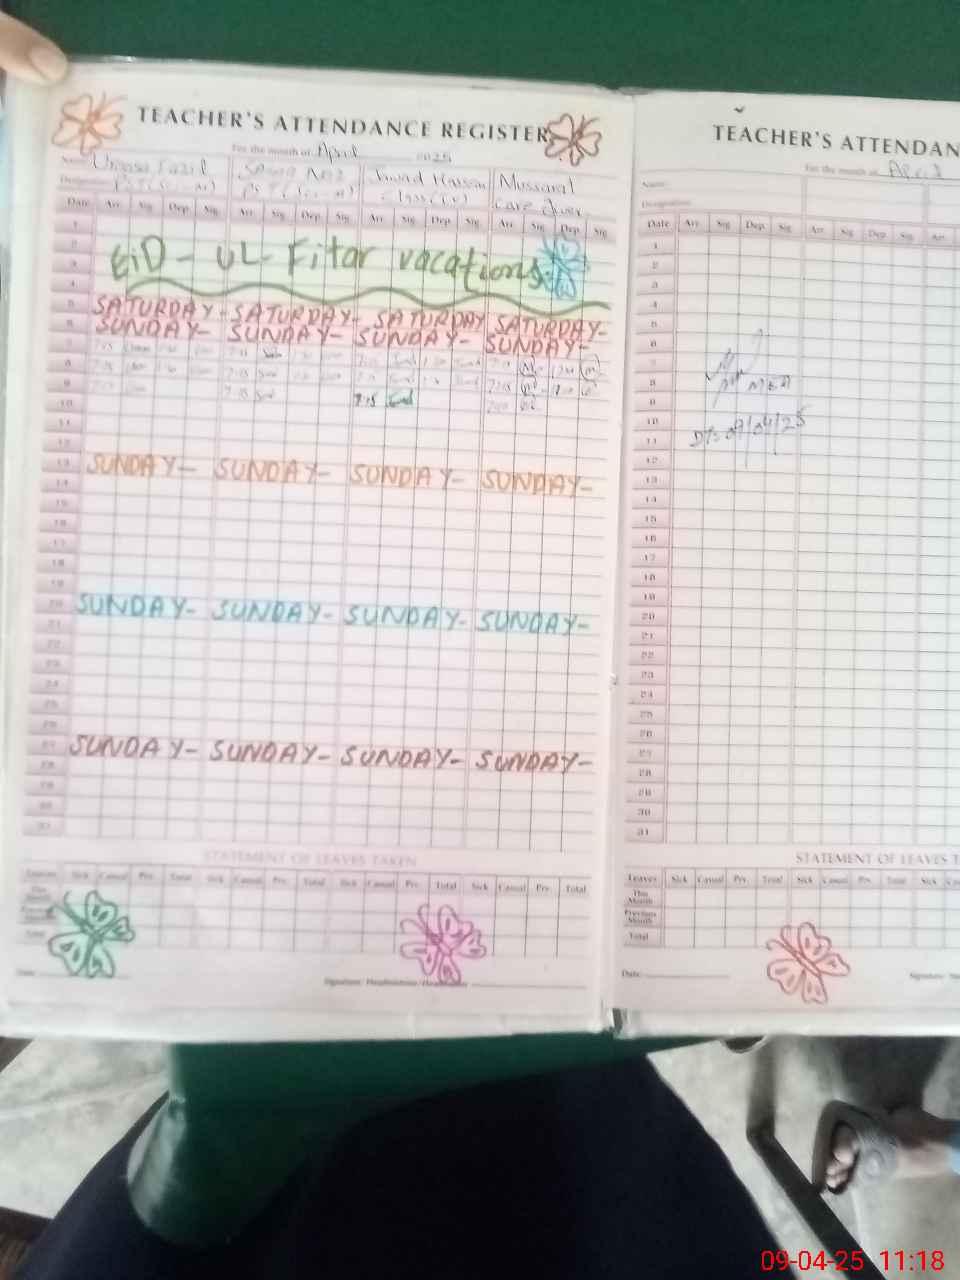 TEACHER'S ATTENDANCE REGISTER
For the month of April 2025
Name Fazil Jawad Hassan Mussarat
Designation PST Class (IV) care giver
Date Arr Sig Dep Sig Arr Sig Dep Sig Arr Sig Dep Sig Arr Sig Dep Sig
1
2
EiD - UL - Fitar vacations
3
4
5 SATURDAY - SATURDAY - SATURDAY SATURDAY -
6 SUNDAY - SUNDAY - SUNDAY - SUNDAY -
7 7:15 7:15 7:15
8 7:15 7:15 7:15 7:15
9 7:15 7:15 7:15
10
11
12
13 SUNDAY - SUNDAY - SUNDAY - SUNDAY -
14
15
16
17
18
19
20 SUNDAY - SUNDAY - SUNDAY - SUNDAY -
21
22
23
24
25
26
27 SUNDAY - SUNDAY - SUNDAY - SUNDAY -
28
29
30
31
STATEMENT OF LEAVES TAKEN
Leaves Sick Casual Prv. Total Sick Casual Prv. Total Sick Casual Prv. Total Sick Casual Prv. Total
This Month
Previous Month
Total
Date
Signature: Headmistress/Head
TEACHER'S ATTENDAN
For the month of April
Name:
Designation:
Date Arr Sig Dep Sig Arr Sig Dep Sig Arr
1
2
3
4
5
6
7
8 MEA
9
10
11 Dt: 09/04/25
12
13
14
15
16
17
18
19
20
21
22
23
24
25
26
27
28
29
30
31
STATEMENT OF LEAVES T
Leaves Sick Casual Prv. Total Sick Casual Prv. Total Sick
This Month
Previous Month
Total
Date:
Signature:
09-04-25 11:18